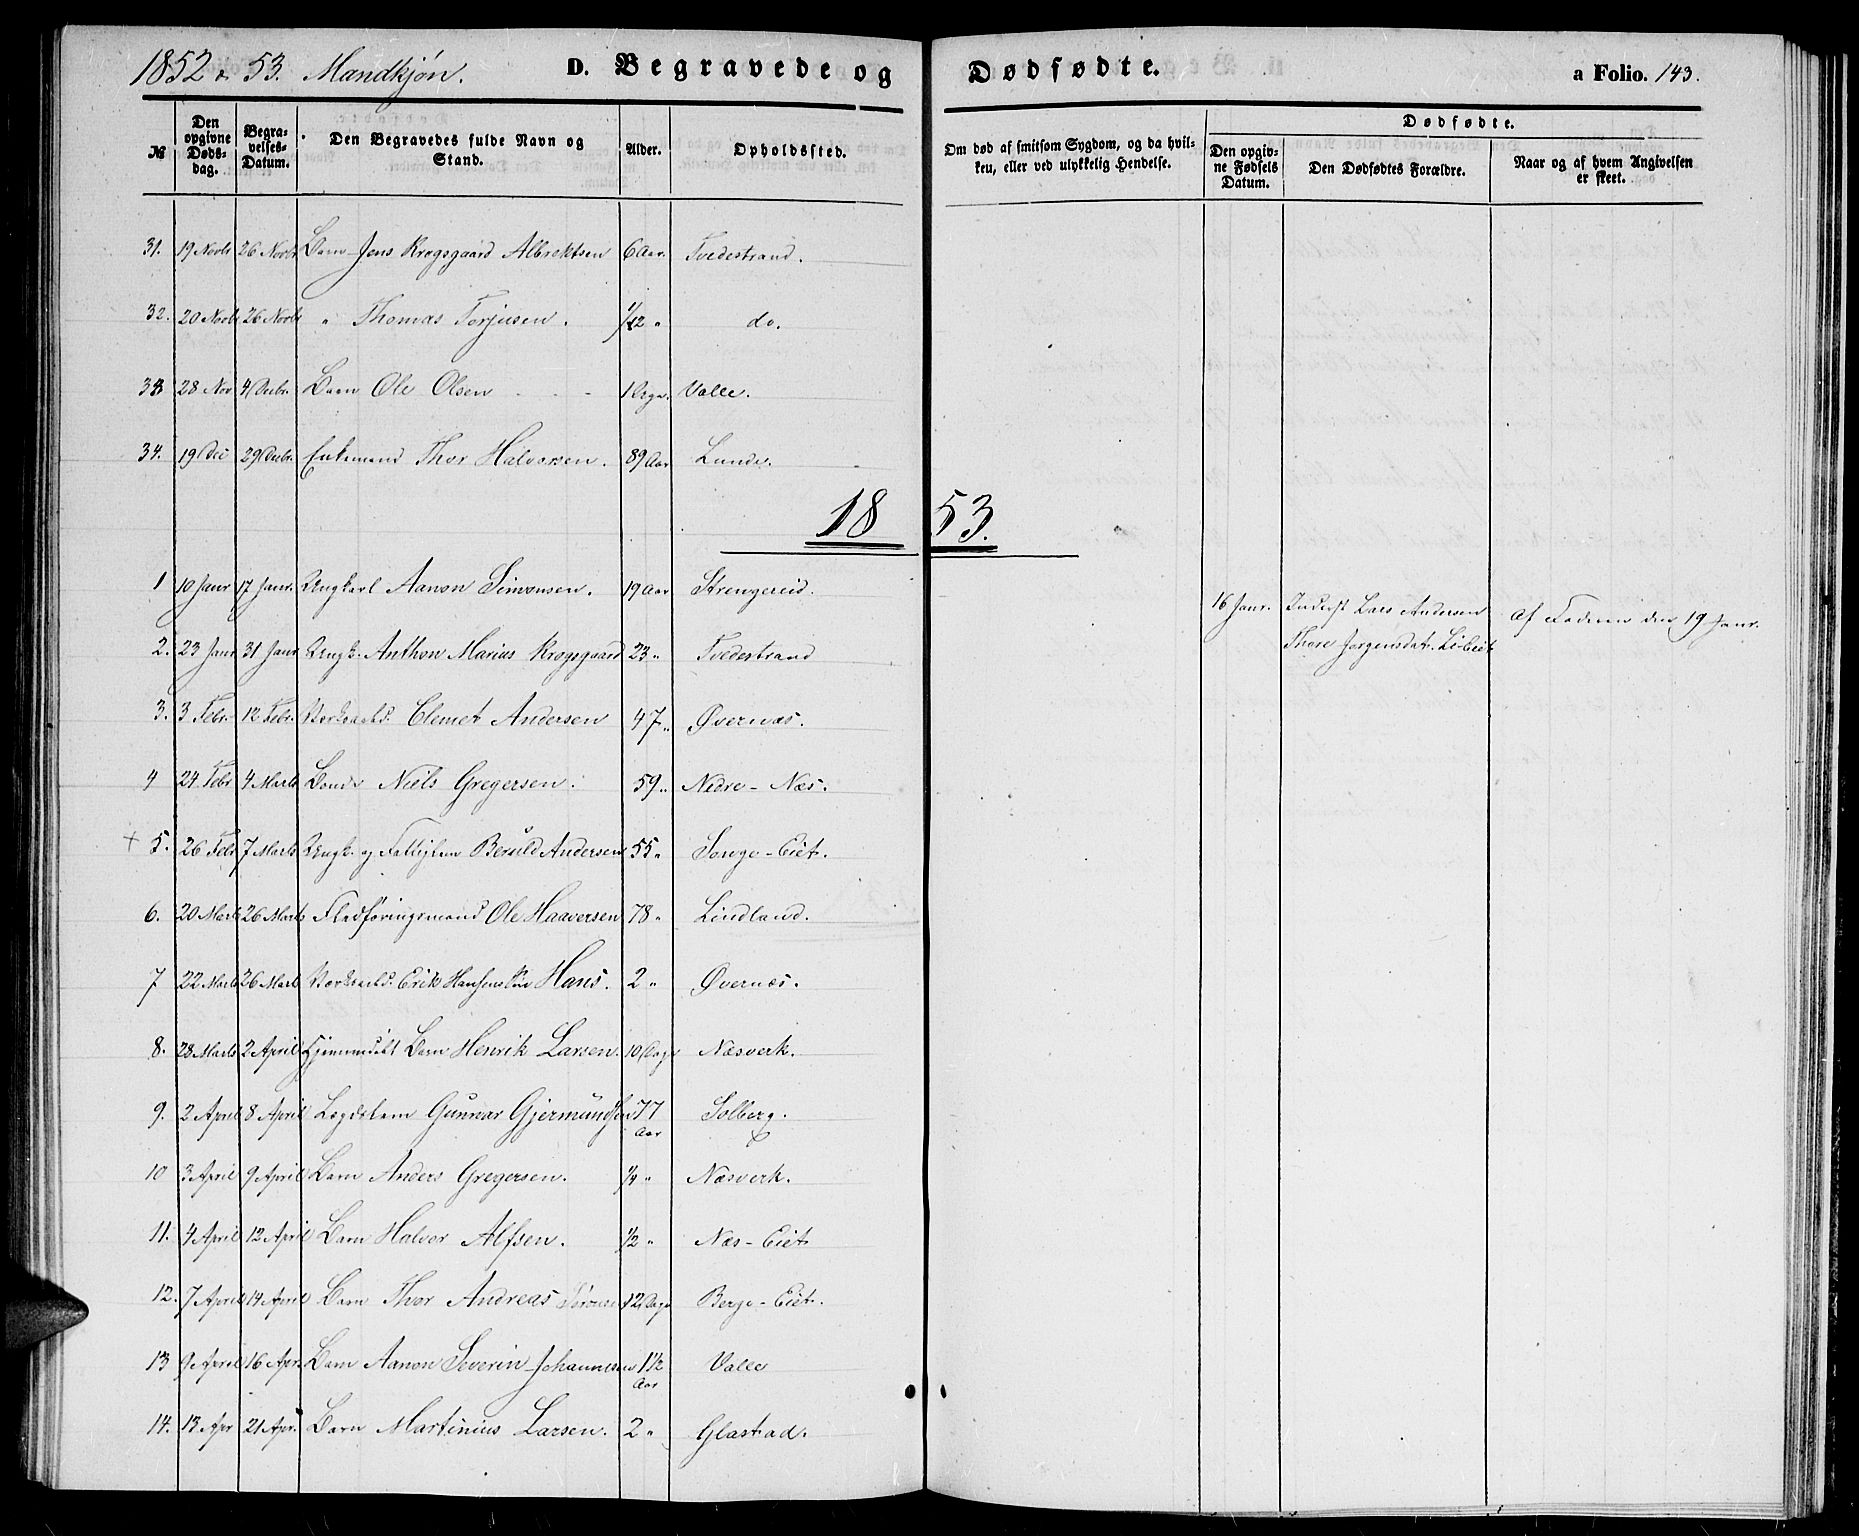 1852 & 53. Mandkjøn. D. Begravede og Dødfødte. a Folio. 143.
№ Den opgivne Døds-dag. Begra-velses-Datum. Den Begravedes fulde Navn og Stand. Alder. Opholdssted. Om død af smitsom Sygdom, og da hvil-ken, eller ved ulykkelig Hendelse. Dødfødte. Den opgiv-ne Fødsels Datum. Den Dødfødtes Forældre. Naar og af hvem Angivelsen er skeet.
31. 19 Novbr 26 Novbr. Barn Jens Krogsgaard Albrektsen 6 Aar. Tvedestrand.
32. 20 Novbr 26 Novbr " Thomas Torjusen. 1/12 " do.
33 28 Nov 4 Decbr. Barn Ole Olsen 1 Valle.
34. 19 Dec 29 Decbr. Enkemand Thor Halvorsen. 89 Aar Lunde.
18 53.
1 10 Janr 17 Janr. Ungkarl Aanon Simonsen. 19 Aar Strengereid.
16 Janr. Inderst Lars Andersen Af Faderen den 19 Janr.
2. 23 Janr 31 Janr Ungk. Anthon Marius Krogsgaard 23 " Tvedestrand
Thore Jorgensdat.
3. 3 Febr. 12 Febr. Clemet Andersen 47 " Øvernæs.
4 24 Febr 4 Marts Bonde Niels Gregersen. 59 " Nedre-Næs.
+ 5. 26 Febr 7 Marts Ungk. og Fattiglem Beruld Andersen 55 " Songe-Eiet.
6. 20 Marts 26 Marts Fledføringsmand Ole Haaversen 78 " Lindland.
7 22 Marts 26 Marts Erik Hansens Søn Hans. 2 " Øvernæs.
8. 28 Marts 2 April Hjemmedøbt Barn Henrik Larsen. 10 Dage Næsverk.
9. 2 April 8 April Lægdslem Gunnar Gjermundsen 77 Aar Solberg.
10 3 April 9 April Barn Anders Gregersen. 1/4 " Næsverk.
11. 4 April 12 April Barn Halvor Alfsen. 1/2 " Næs-Eiet
12. 7 April 14 April Barn Thor Andreas 12 Dage Berge-Eiet.
13 9 April 16 Apr. Barn Aanon Severin Johannesen 1 1/2 Aar Valle
14. 13 Apr 21 Apr. Barn Martinius Larsen. 2 " Glastad.